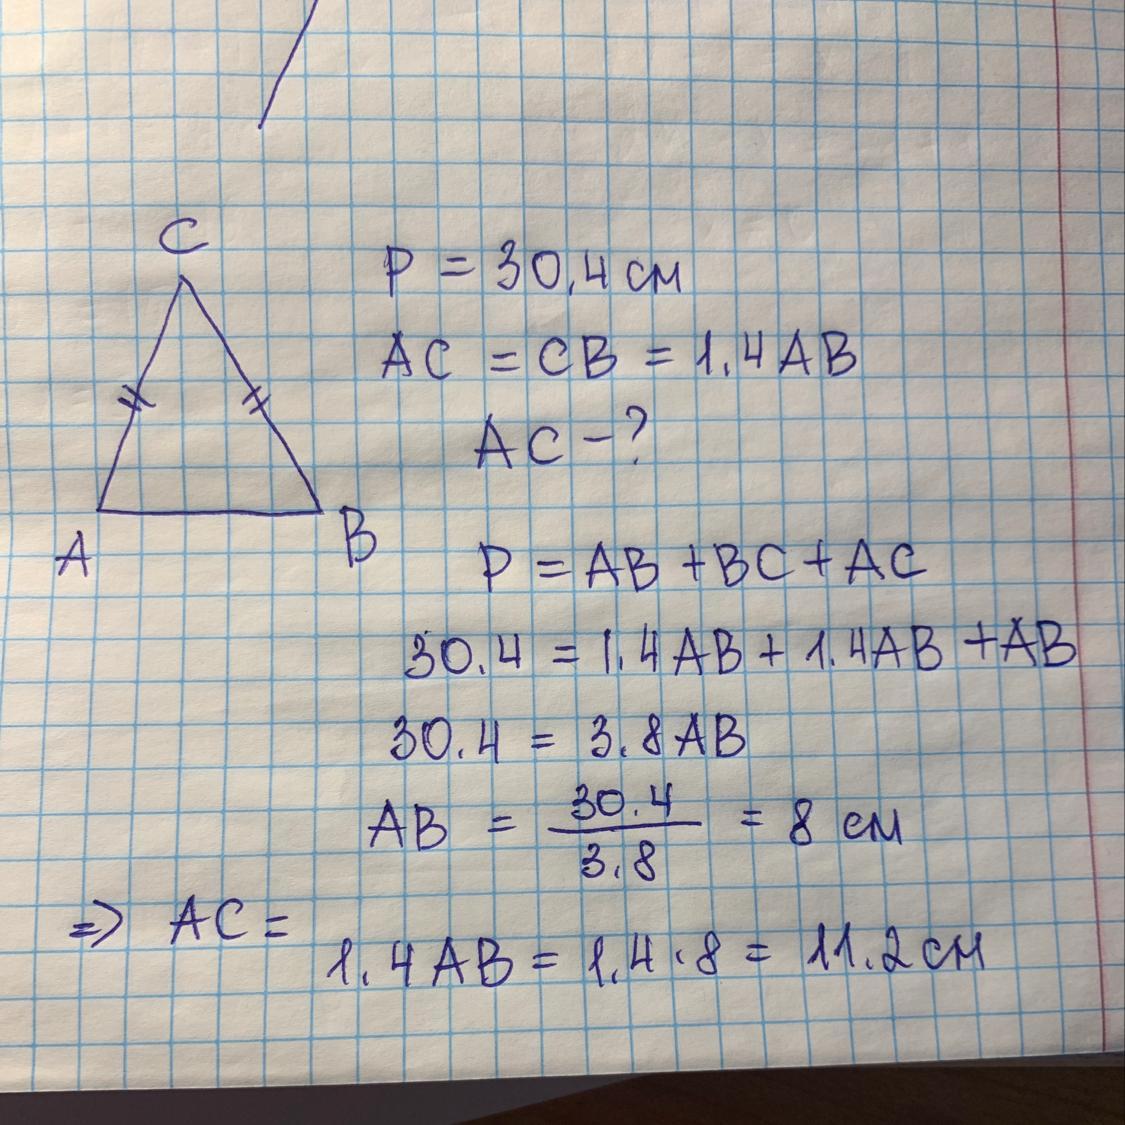 C
P = 30,4 см
AC = CB = 1.4 AB
AC - ?
A
B
P = AB + BC + AC
30.4 = 1.4 AB + 1.4 AB + AB
30.4 = 3.8 AB
AB = 30.4 / 3.8 = 8 см
=> AC =
1.4 AB = 1.4 · 8 = 11.2 см